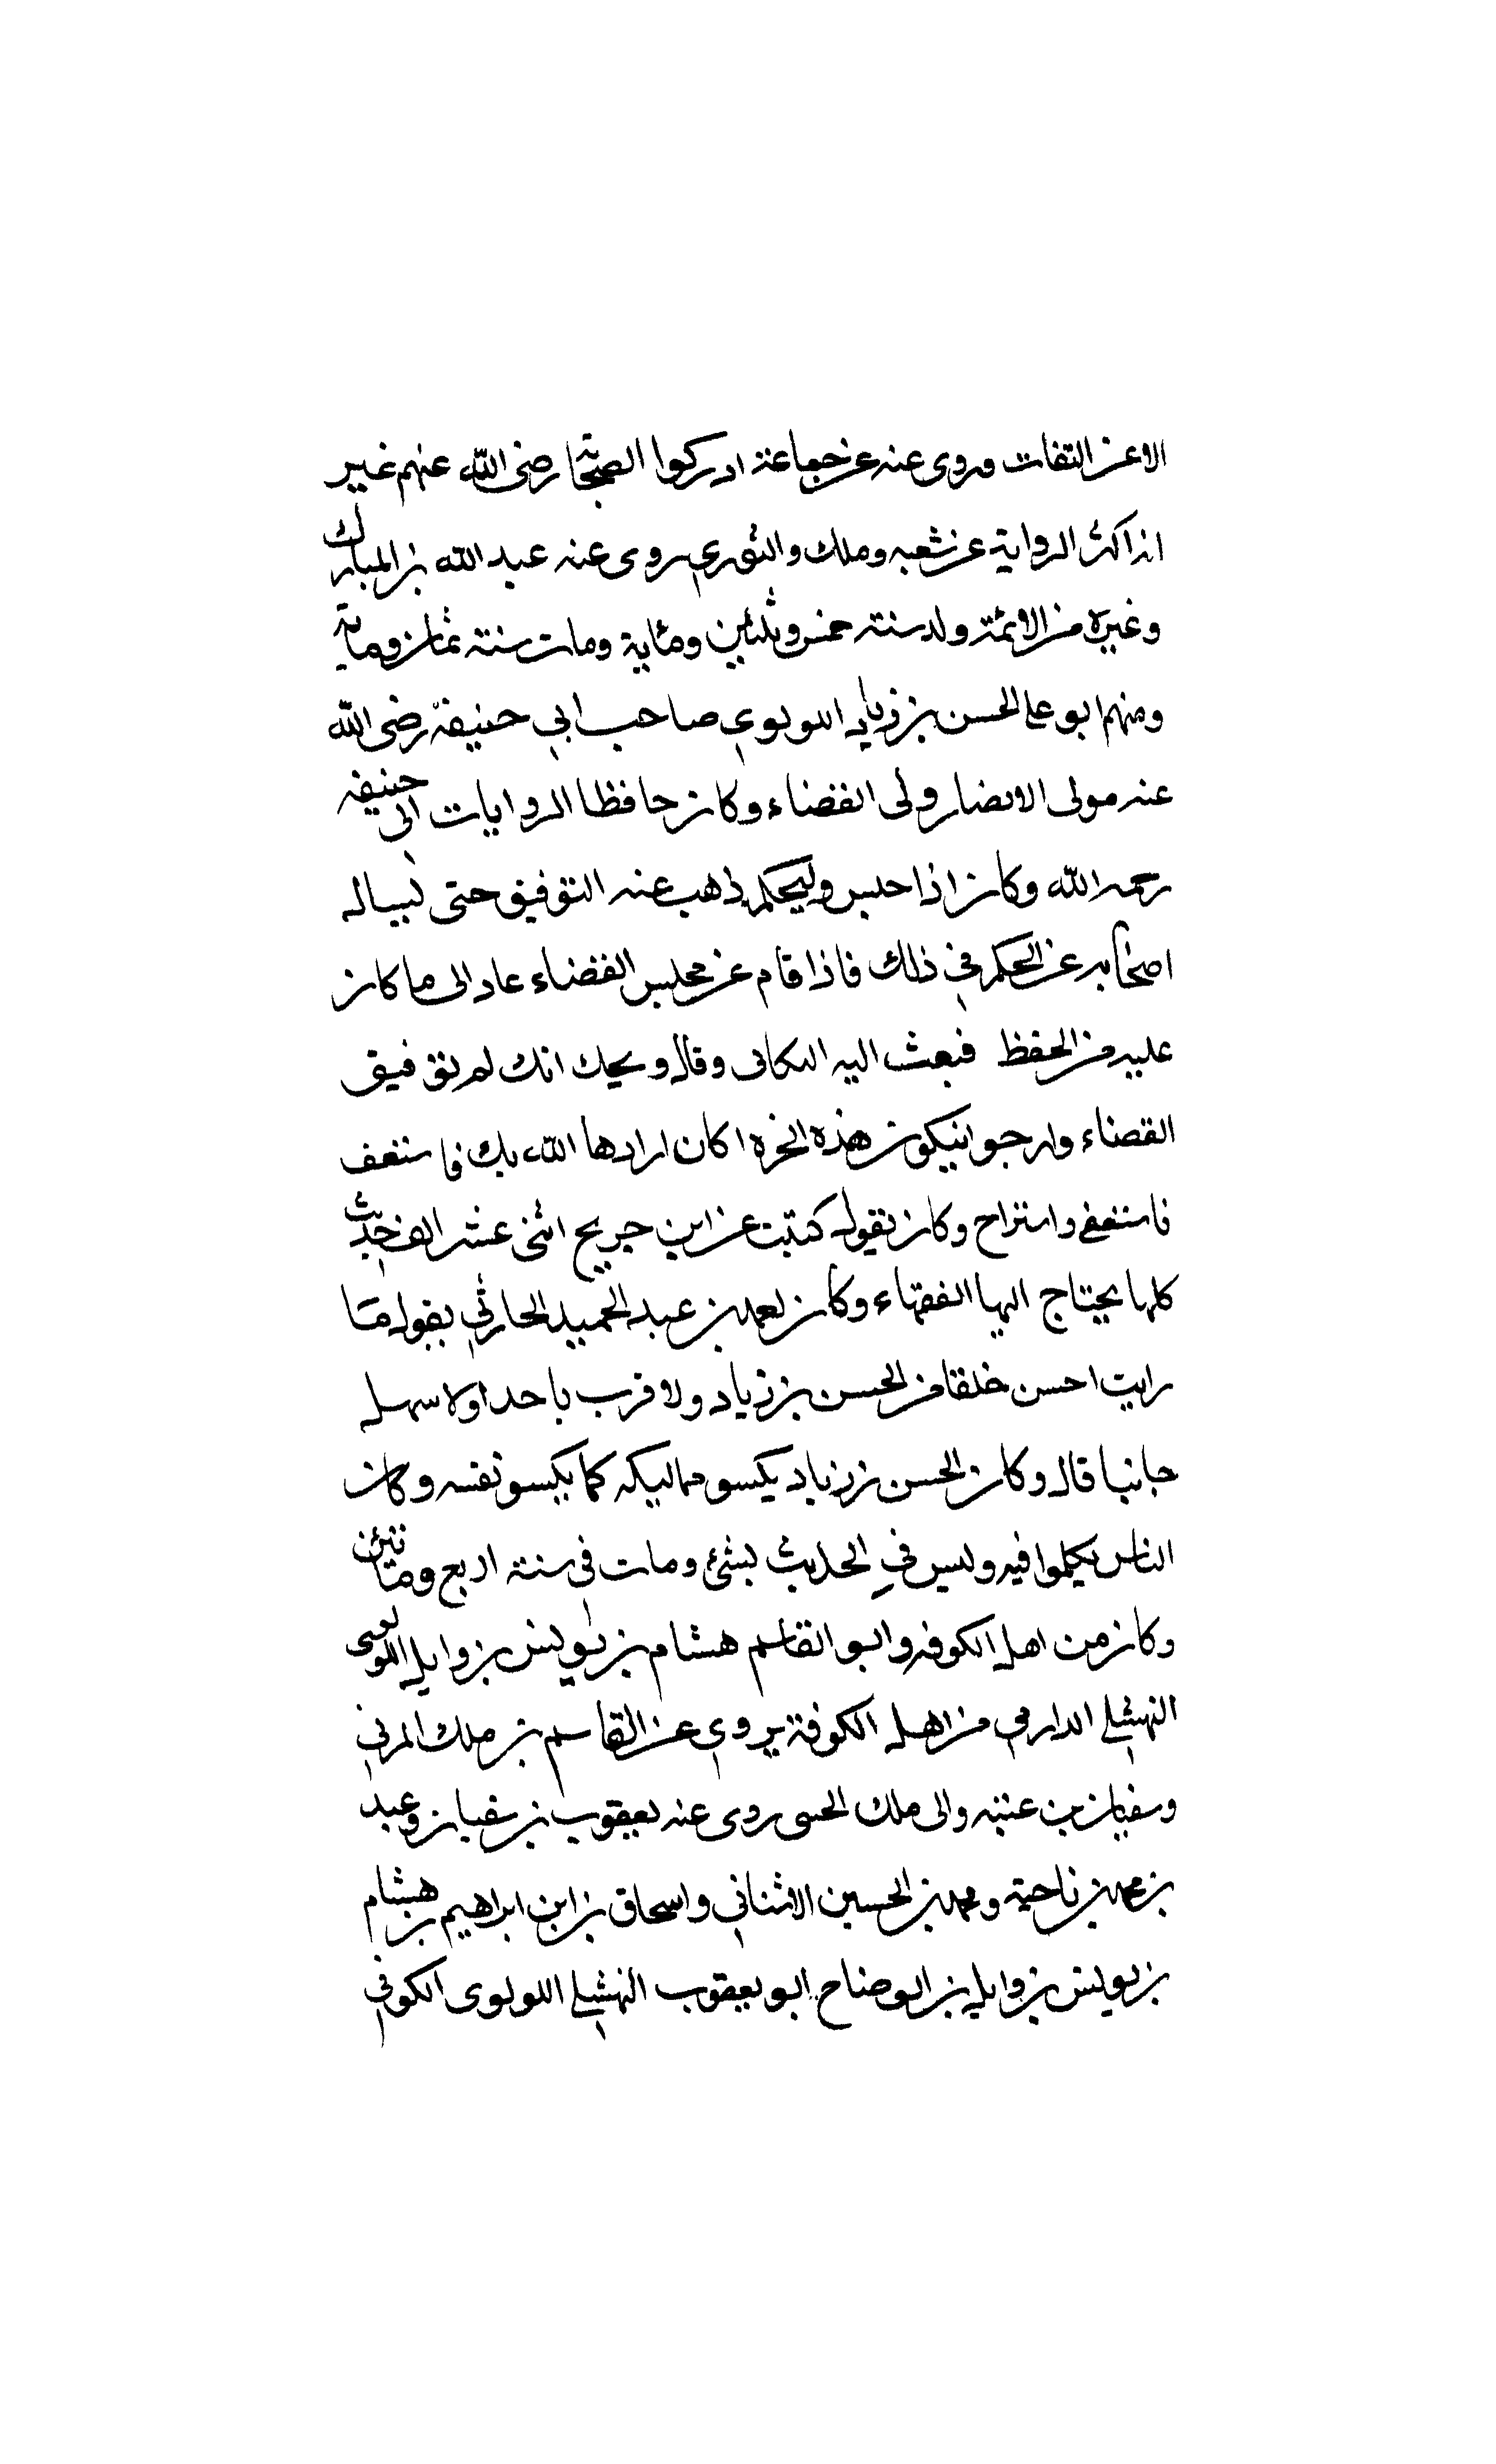 الا عن الثقات وروى عنه عن جماعة ادركوا الصحابة رضى الله عنهم غير
ان اكثر الرواية عن شعبه وملك والثوري روى عنه عبد الله بن المبارك
وغيره من الائمة ولد سنة خمس وثلثين ومئاية ومات سنة ثمان وماية
ومنهم ابو على الحسن بن زياد اللولوي صاحب ابي حنيفة رضى الله
عنه مولى الانصار ولى القضاء وكان حافظا الروايات ابى حنيفه
رحمه الله وكان اذا جلس وليحكم ذهب عنه التوفيق حتى ليساله
اصحابه عن الحكم في ذلك فاذا قام عن مجلس القضاء عاد الى ما كان
عليه من الحفظ فبعث اليه البكائى وقال ويحك انك لم توفيق
القضاء وارجوا انيكون هذه الخره اكان ارادها الله بك فاستعف
فاستعفى واستراح وكان يقول كتبت عن ابن جريج اثنى عشر الف حديث
كلها يحتاج اليها الفقهاء وكان احمد بن عبد الحميد الحارثي يقول ما
رايت احسن خلقا من الحسن بن زياد ولا قرب باحد اولا سهل
جانبا قال وكان الحسن بن زياد يكسو مماليكه كما يكسو نفسه وكان
الناس يكلموا فيه وليس في الحديث بشئ ومات في سنة اربع ومائتين
وكان من اهل الكوفه وابو القاسم هشام بن يونس بن وابل اللولوى
النهشلي الدارمي من اهل الكوفة يروي عن القاسم بن ملك المزني
وسفيان بن عتبه والى ملك الحسى روى عنه يعقوب بن سفيان وعبد
بن محمد بن ناحية ومحمد بن الحسين الاشناني واسحاق بن ابن ابراهيم بن هشام
بن يونس بن وابل بن الوضاح ابو يعقوب النهشلي اللولوى الكوفي